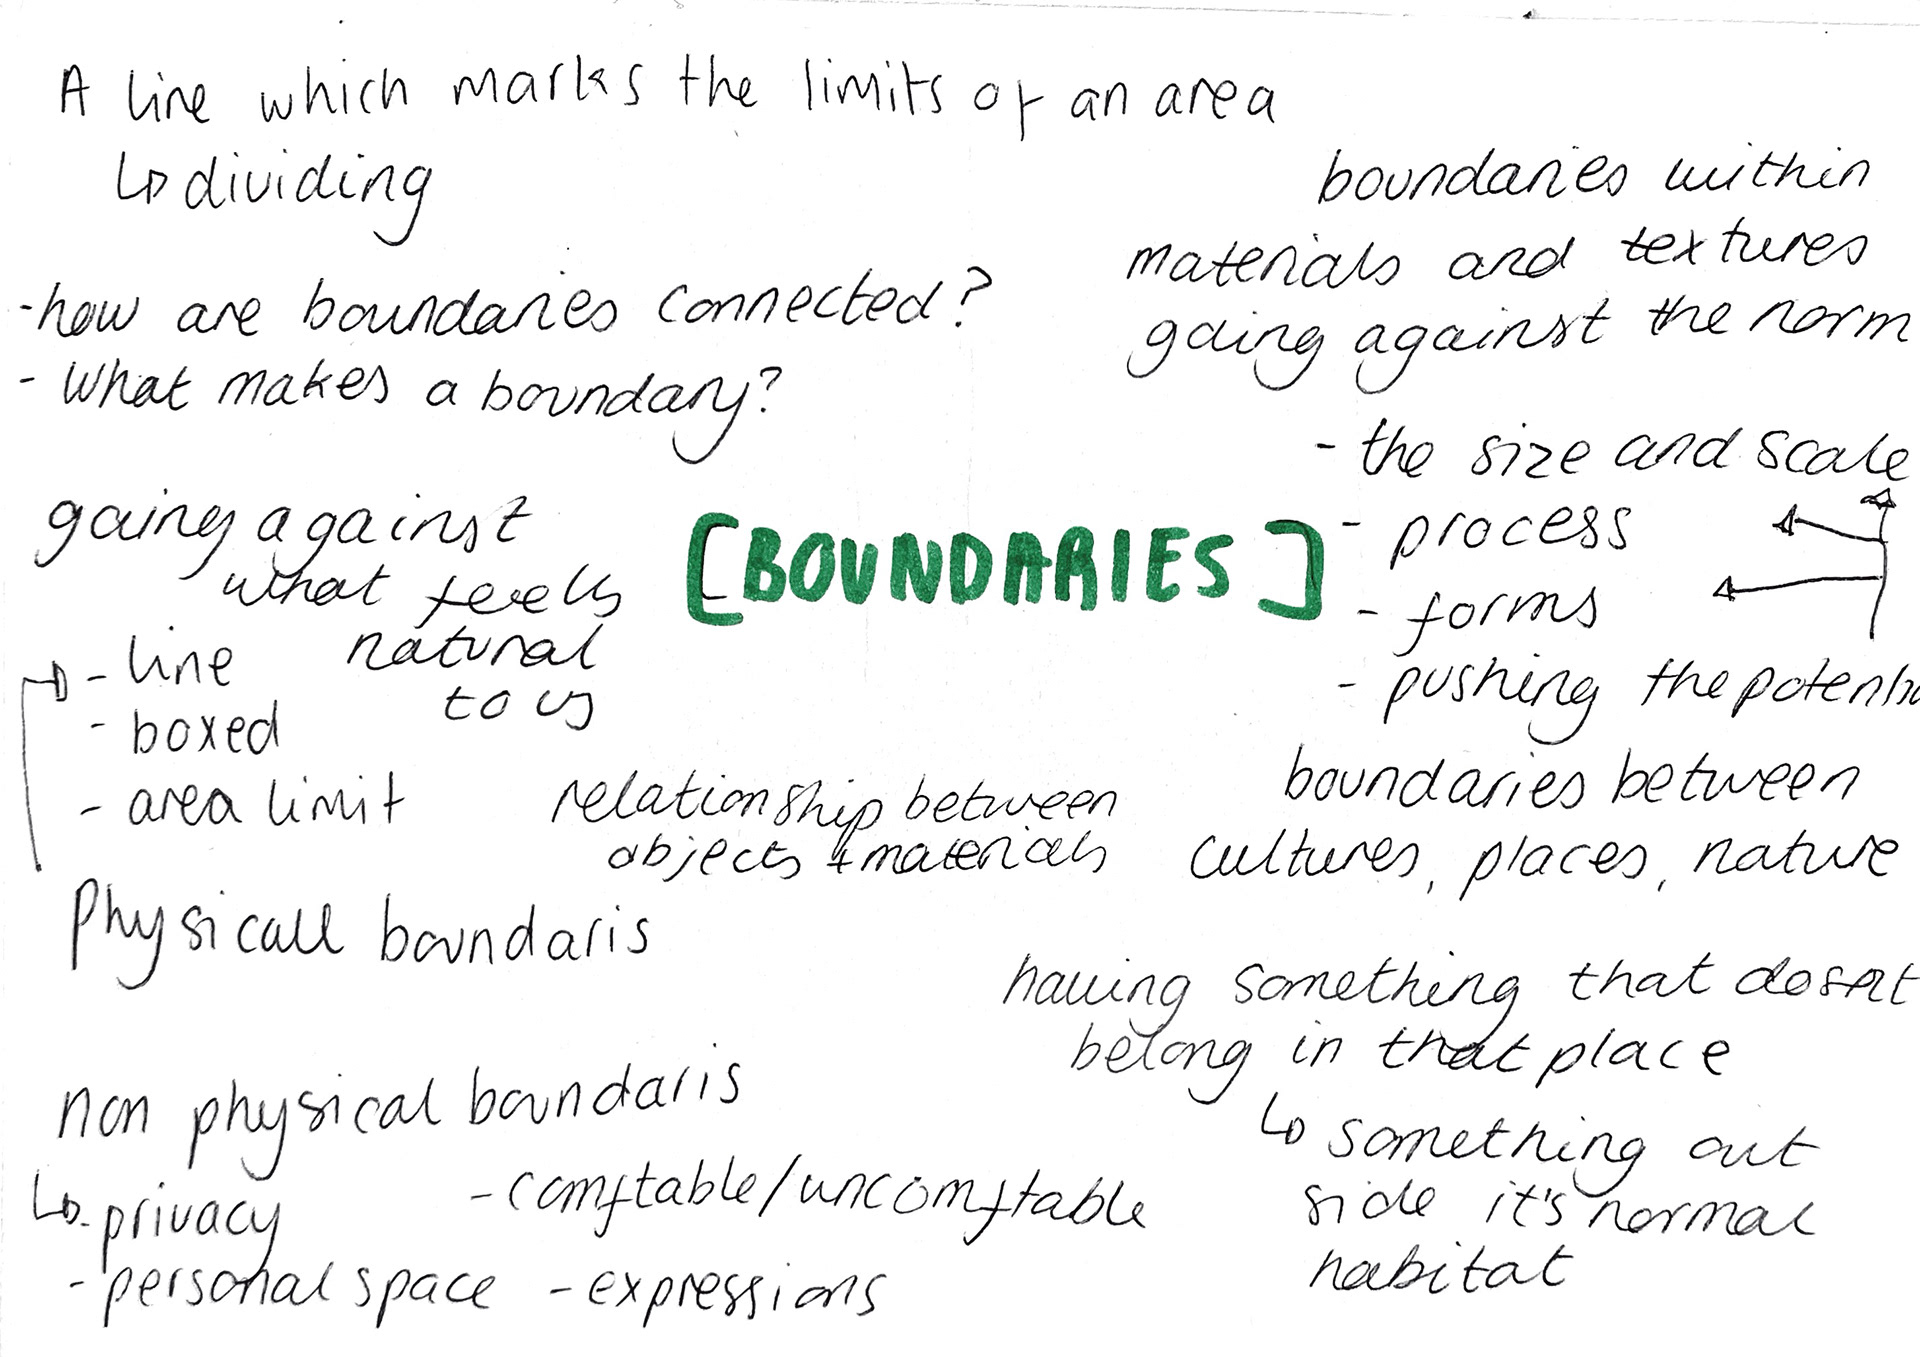 A line which marks the limits of an area
↳ dividing
- how are boundaries connected?
- What makes a boundary?
going against
what feels
natural
to us
- line
- boxed
- area limit
Physicall boundaris
non physical boundaris
↳ - privacy
- personal space
- comftable/uncomftable
- expressions
[BOUNDARIES]
relationship between
objects + materials
boundaries within
materials and textures
going against the norm
- the size and scale
- process
- forms
- pushing the
boundaries between
cultures, places, nature
having something that
belong in that place
↳ something out
side it's normal
habitat